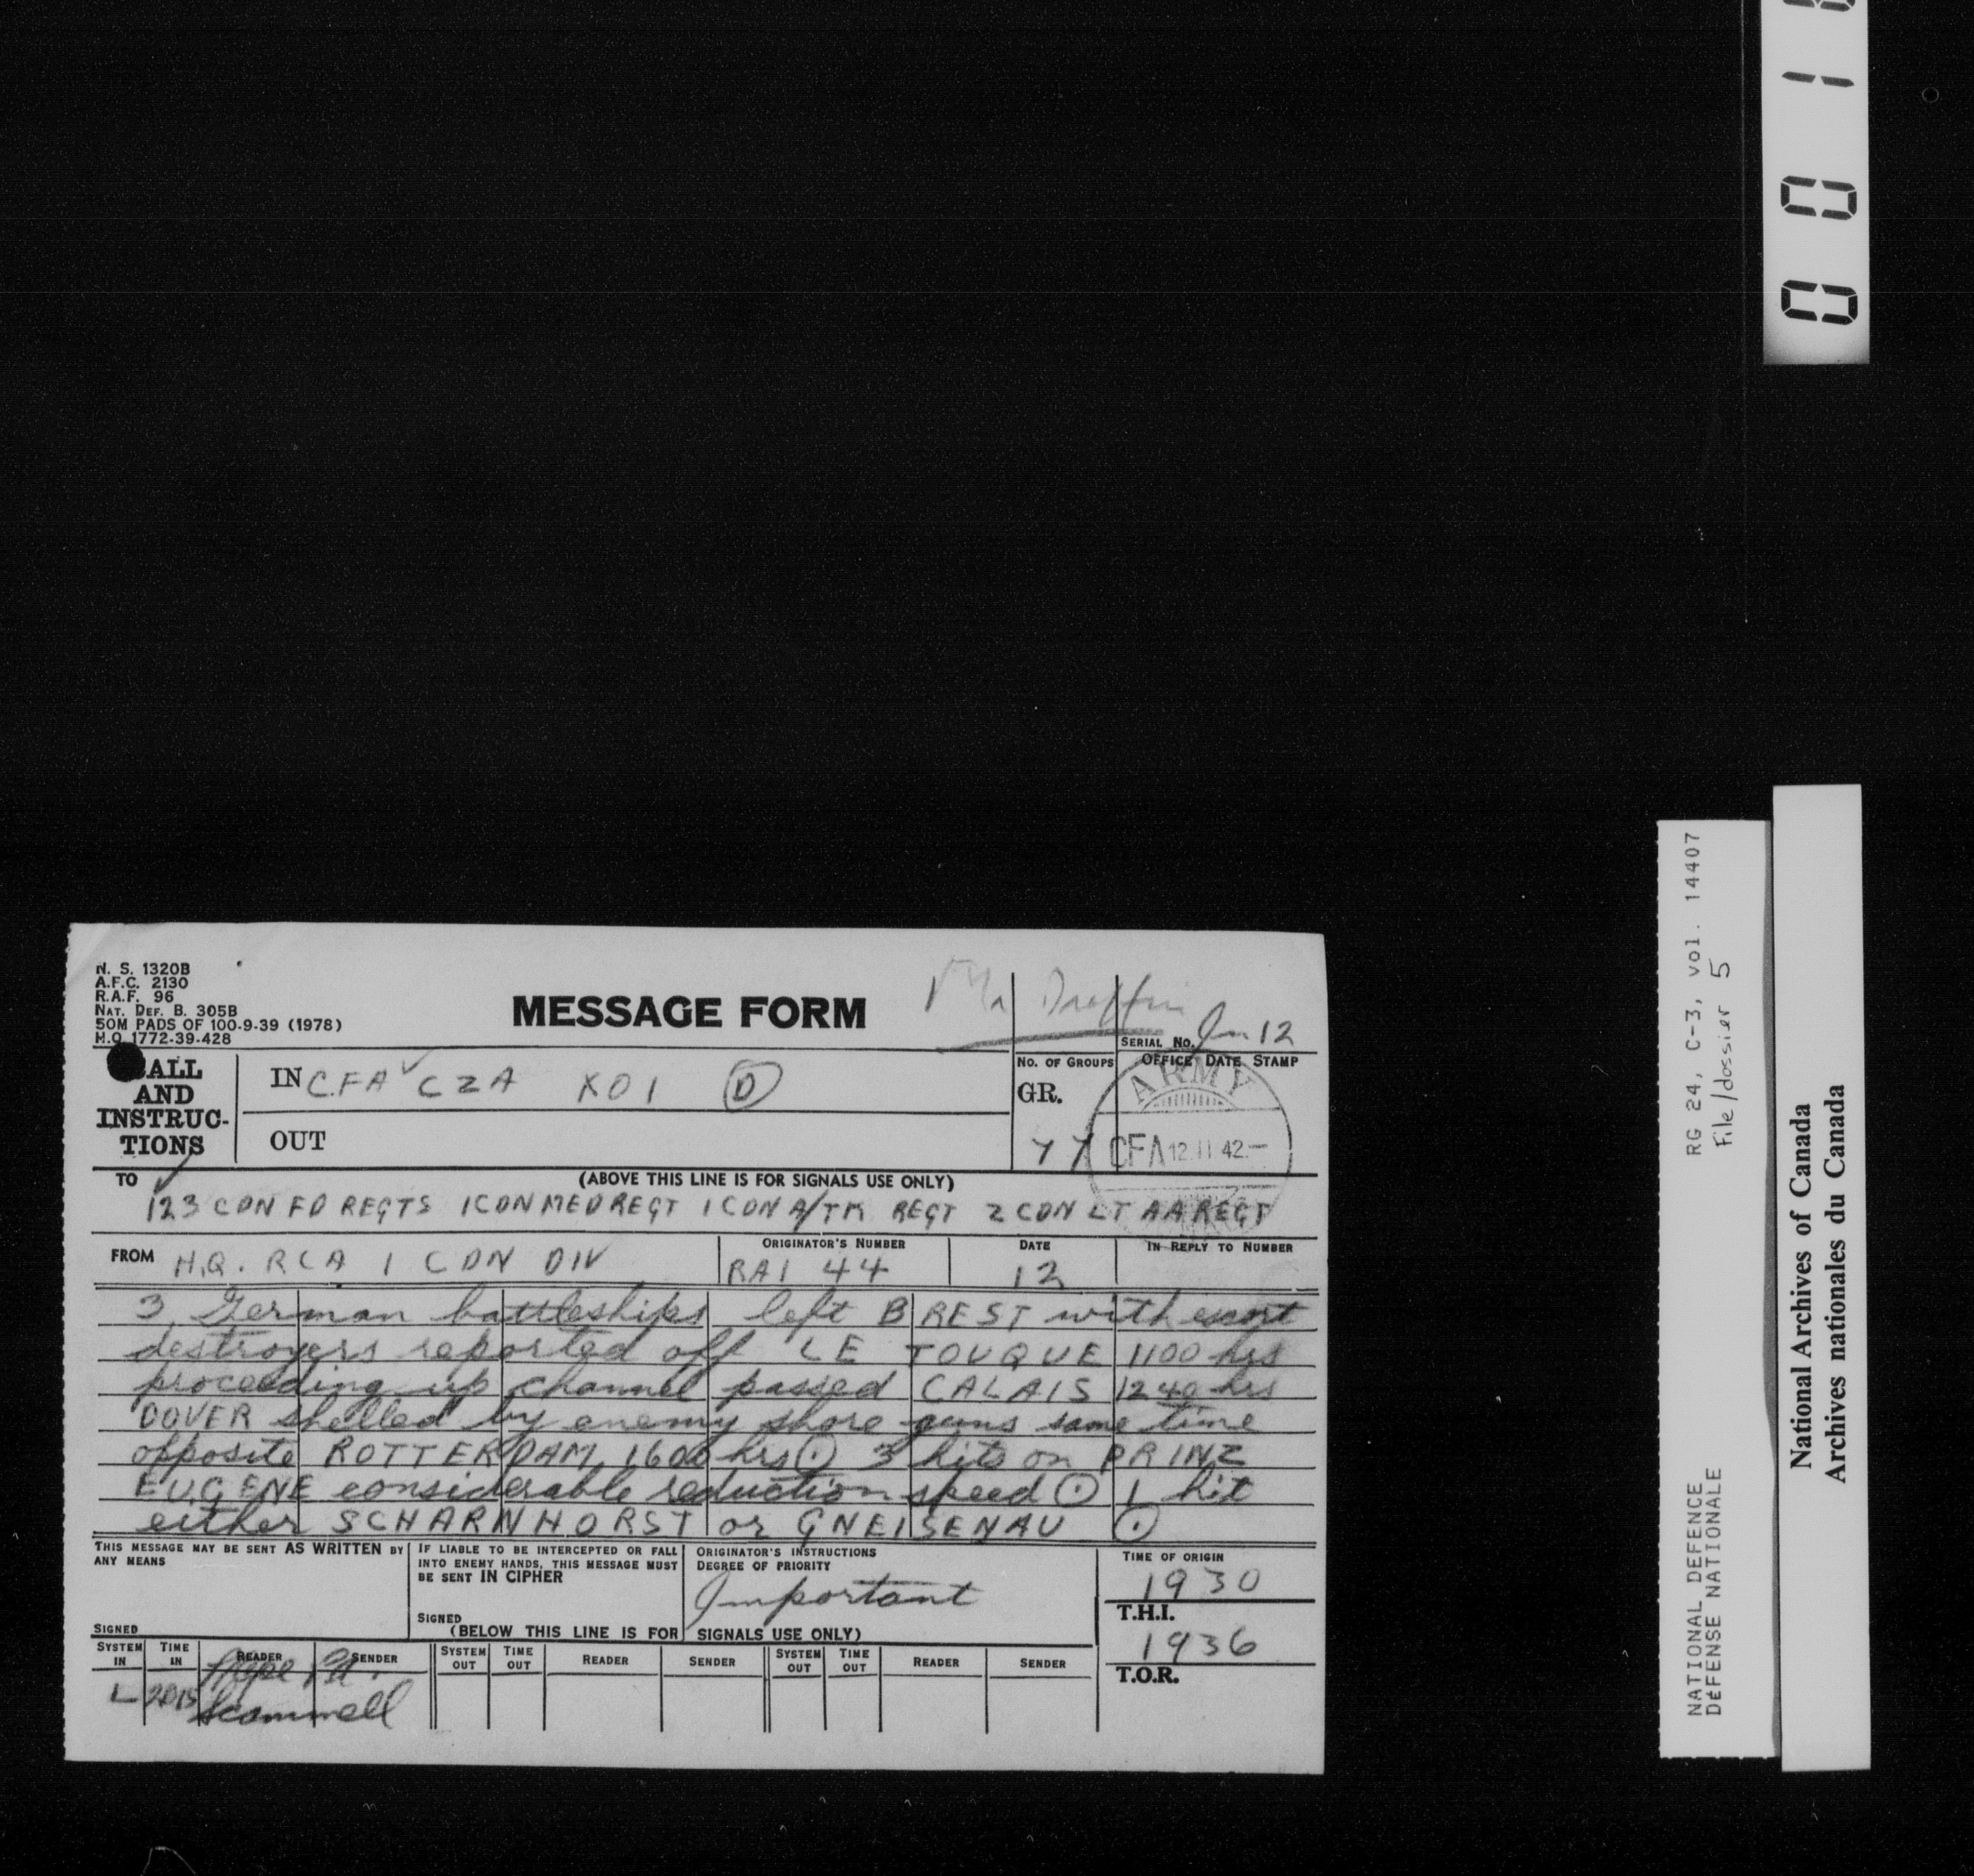 N. S. 1320B
A.F.C. 2130
R.A.F. 96
NAT. DEF. B. 305B
50M PADS OF 100-9-39 (1978)
H.Q. 1772-39-428
MESSAGE FORM
Mr
SERIAL No. In 12
ALL AND INSTRUC-TIONS
IN CFA CZA XO1 D
OUT
No. OF GROUPS
GR.
77
OFFICE DATE STAMP
ARMY
CFA 12.II 42.-
TO
(ABOVE THIS LINE IS FOR SIGNALS USE ONLY)
123 CDN FD REGTS 1 CDN MED REGT 1 CDN A/TK REGT 2 CDN LT AA REGT
FROM H.Q. RCA 1 CDN DIV
ORIGINATOR'S NUMBER
RA1 44
DATE
12
IN REPLY TO NUMBER
3 German battleships left BREST with escort
destroyers reported off LE TOUQUE 1100 hrs
proceeding up channel passed CALAIS 1240 hrs
DOVER shelled by enemy shore guns same time
opposite ROTTERDAM 1600 hrs ⊙ 3 hits on PRINZ
EUGENE considerable reduction speed ⊙ 1 hit
either SCHARNHORST or GNEISENAU ⊙
THIS MESSAGE MAY BE SENT AS WRITTEN BY
ANY MEANS
SIGNED
IF LIABLE TO BE INTERCEPTED OR FALL
INTO ENEMY HANDS, THIS MESSAGE MUST
BE SENT IN CIPHER
SIGNED
ORIGINATOR'S INSTRUCTIONS
DEGREE OF PRIORITY
Important
(BELOW THIS LINE IS FOR SIGNALS USE ONLY)
TIME OF ORIGIN
1930
T.H.I.
1936
T.O.R.
SYSTEM IN
TIME IN
READER
SENDER
SYSTEM OUT
TIME OUT
READER
SENDER
SYSTEM OUT
TIME OUT
READER
SENDER
L 2015
Scammell
RG 24, C-3, vol. 14407
File/dossier 5
NATIONAL DEFENCE
DÉFENSE NATIONALE
National Archives of Canada
Archives nationales du Canada